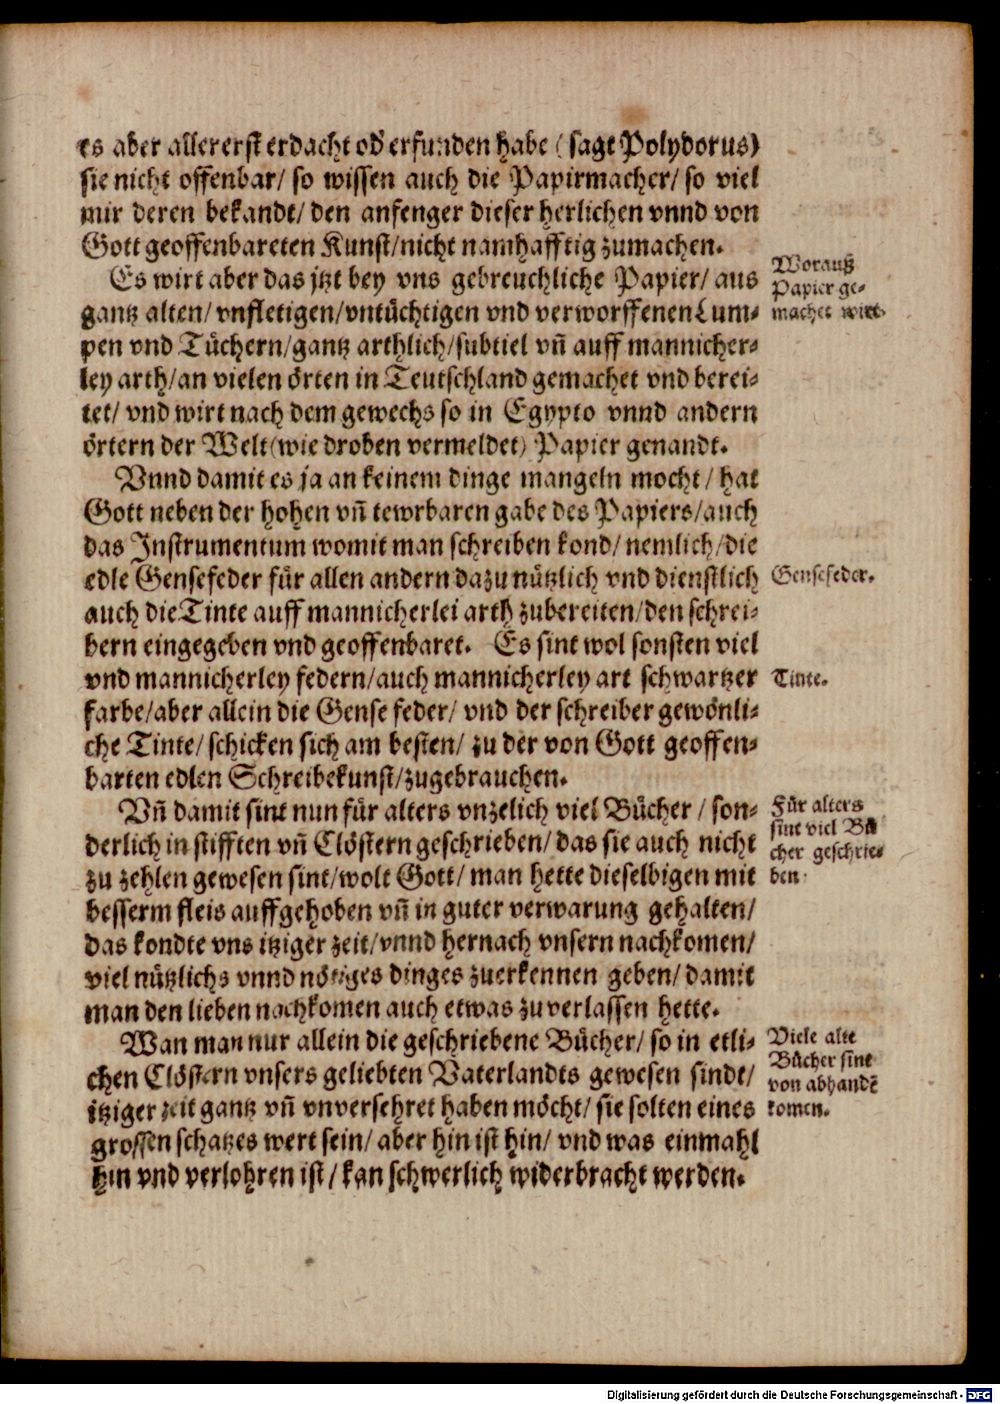 es aber allererst erdacht od' erfunden habe (sagt Polydorus)
sie nicht offenbar/ so wissen auch die Papirmacher/ so viel
mir deren bekandt/ den anfenger dieser herlichen vnnd von
Gott geoffenbareten Kunst/nicht namhafftig zumachen.
Es wirt aber das jtzt bey vns gebreuchliche Papier/ aus
gantz alten/ vnfletigen/vntüchtigen vnd verworffenen Lum-
pen vnd Tüchern/gantz arthlich/subtiel vñ auff mannicher-
ley arth/an vielen örten in Teutschland gemachet vnd berei-
tet/ vnd wirt nach dem gewechs so in Egypto vnnd andern
örtern der Welt (wie droben vermeldet) Papier genandt.
Worauß
Papier ge-
machet wirt.
Vnnd damit es ja an keinem dinge mangeln mocht/ hat
Gott neben der hohen vñ tewrbaren gabe des Papiers/auch
das Instrumentum womit man schreiben kond/ nemlich/die
edle Gensefeder für allen andern dazu nützlich vnd dienstlich
auch die Tinte auff mannicherlei arth zubereiten/den schrei-
bern eingegeben vnd geoffenbaret. Es sint wol sonsten viel
vnd mannicherley federn/auch mannicherley art schwartzer
farbe/aber allein die Gense feder/ vnd der schreiber gewönli-
che Tinte/ schicken sich am besten/ zu der von Gott geoffen-
barten edlen Schreibekunst/zugebrauchen.
Gensefeder.
Tinte.
Vñ damit sint nun für alters vnzelich viel Bücher / son-
derlich in stifften vñ Clöstern geschrieben/ das sie auch nicht
zu zehlen gewesen sint/wolt Gott/ man hette dieselbigen mit
besserm fleis auffgehoben vñ in guter verwarung gehalten/
das kondte vns itziger zeit/vnnd hernach vnsern nachkomen/
viel nützlichs vnnd nötiges dinges zuerkennen geben/ damit
man den lieben nachkomen auch etwas zuverlassen hette.
Für alters
sint viel Bü
cher geschrie-
ben.
Wan man nur allein die geschriebene Bücher/ so in etli-
chen Clöstern vnsers geliebten Vaterlandts gewesen sindt/
itziger zeit gantz vñ vnversehret haben möcht/ sie solten eines
grossen schatzes wert sein/ aber hin ist hin/ vnd was einmahl
hin vnd verlohren ist/ kan schwerlich widerbracht werden.
Viele alte
Bücher sint
von abhandẽ
komen.
Digitalisierung gefördert durch die Deutsche Forschungsgemeinschaft - DFG